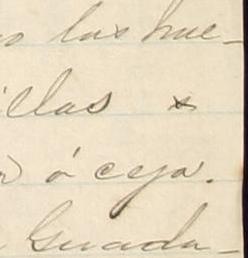 las hue-
illas x
ó ceja.
Guada-